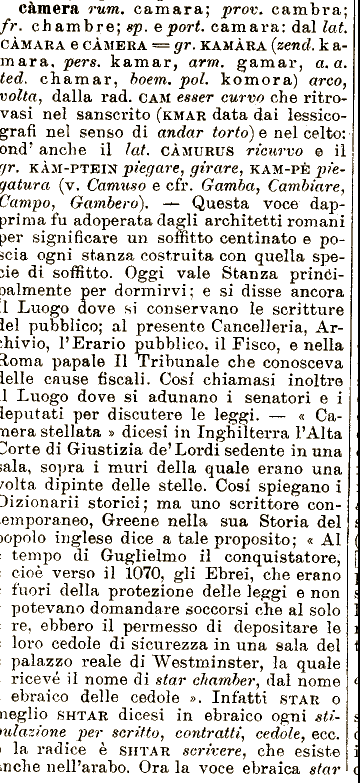 càmera rum. camara; prov. cambra;
fr. chambre; sp. e port. camara: dal lat.
CÀMARA e CÀMERA = gr. KAMÀRA (zend. ka-
mara, pers. kamar, arm. gamar, a. a.
ted. chamar, boem. pol. komora) arco,
volta, dalla rad. CAM esser curvo che ritro-
vasi nel sanscrito (KMAR data dai lessico-
grafi nel senso di andar torto) e nel celto:
ond' anche il lat. CÀMURUS ricurvo e il
gr. KÀM-PTEIN piegare, girare, KAM-PÈ pie-
gatura (v. Camuso e cfr. Gamba, Cambiare,
Campo, Gambero). — Questa voce dap-
prima fu adoperata dagli architetti romani
per significare un soffitto centinato e po-
scia ogni stanza costruita con quella spe-
cie di soffitto. Oggi vale Stanza princi-
palmente per dormirvi; e si disse ancora
il Luogo dove si conservano le scritture
del pubblico; al presente Cancelleria, Ar-
chivio, l'Erario pubblico, il Fisco, e nella
Roma papale Il Tribunale che conosceva
delle cause fiscali. Cosí chiamasi inoltre
il Luogo dove si adunano i senatori e i
deputati per discutere le leggi. — « Ca-
mera stellata » dicesi in Inghilterra l'Alta
Corte di Giustizia de' Lordi sedente in una
sala, sopra i muri della quale erano una
volta dipinte delle stelle. Cosí spiegano i
Dizionarii storici; ma uno scrittore con-
temporaneo, Greene nella sua Storia del
popolo inglese dice a tale proposito; « Al
tempo di Guglielmo il conquistatore,
cioè verso il 1070, gli Ebrei, che erano
fuori della protezione delle leggi e non
potevano domandare soccorsi che al solo
re, ebbero il permesso di depositare le
loro cedole di sicurezza in una sala del
palazzo reale di Westminster, la quale
ricevé il nome di star chamber, dal nome
ebraico delle cedole ». Infatti STAR o
meglio SHTAR dicesi in ebraico ogni sti-
pulazione per scritto, contratti, cedole, ecc.
e la radice è SHTAR scrivere, che esiste
anche nell'arabo. Ora la voce ebraica star